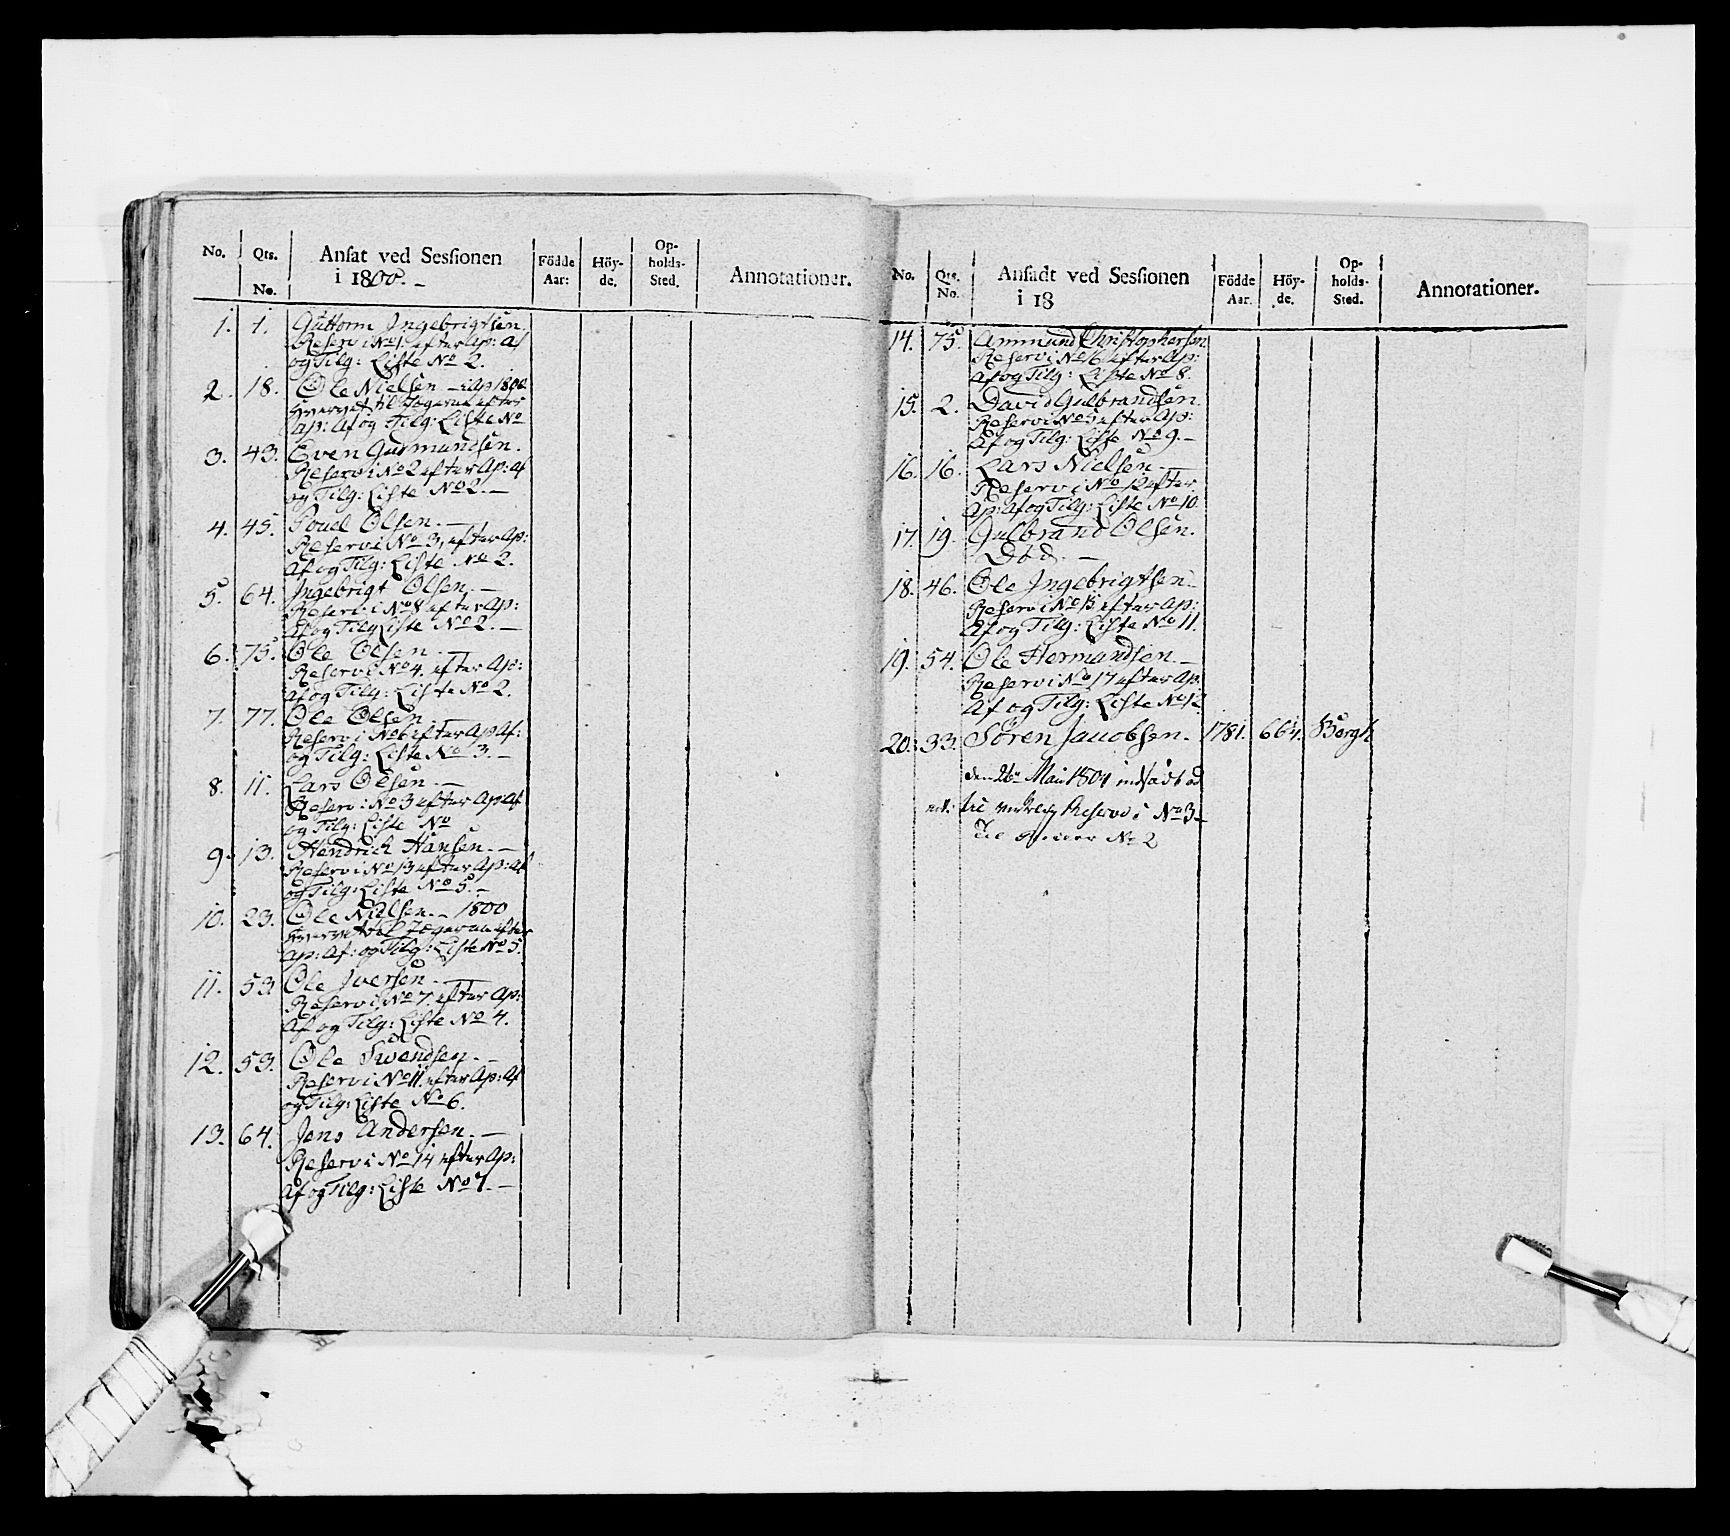 No. Qts. No. Ansat ved Sessionen i 1800. – Födde Aar: Höyde. Opholds-Sted. Annotationer.
1. 1. Guttorm Ingebrigtsen.
Reserv i No 1. efter Ap: Af
og Tilg: Liste No 2.
2. 18. Ole Nielsen – 1800
hvervet til Jægerne efter
Ap: Af og Tilg: Liste No
3. 43. Even Gudmundsen.
Reserv i No 2 efter Ap: Af
og Tilg: Liste No 2. –
4. 45. Pouel Olsen. –
Reserv i No 3, efter Ap:
Af og Tilg: Liste No 2.
5. 64. Ingebrigt Olsen. –
Reserv i No 8 efter Ap:
Af og Tilg Liste No 2. –
6. 75. Ole Olsen. –
Reserv i No 4. efter Ap:
Af og Tilg: Liste No 2.
7. 77. Ole Olsen. –
Reserv i No 6 efter Ap Af:
og Tilg: Liste No 3. –
8. 11. Lars Olsen. –
Reserv i No 3 efter Ap Af
og Tilg: Liste No
9. 13. Hendrich Hansen. –
Reserv i No 13 efter Ap: Af
og Tilg: Liste No 5. –
10. 23. Ole Nielsen. – 1800
hvervet til Jægerne efter
Ap: Af: og Tilg: Liste No 5.
11. 53 Ole Iversen. –
Reserv i No 7. efter Ap:
Af og Tilg: Liste No 4.
12. 53. Ole Swendsen. –
Reserv i No 11. efter Ap: Af
og Tilg: Liste No 6.
13. 64. Jens Andersen. –
Reserv i No 14 efter Ap:
Af og Tilg: Liste No 7. –
No. Qts. No. Ansadt ved Sessionen i 18 Födde Aar. Höyde. Opholds-Sted. Annotationer.
14. 75. Ammund Christophersen
Reserv i No 16 efter Ap:
Af og Tilg: Liste No 8.
15. 2. David Gulbrandsen.
Reserv i No 5 efter Ap:
Af og Tilg: Liste No 9. –
16. 16. Lars Nielsen. –
Reserv i No 12 efter
Ap: Af og Tilg: Liste No 10
17. 19. Gulbrand Olsen.
Död. –
18. 46. Ole Ingebrigtsen. –
Reserv i No 15 efter Ap:
Af og Tilg: Liste No 11.
19. 54. Ole Hermandsen. –
Reserv i No 17 efter Ap
Af og Tilg: Liste No 12
20. 33. Sören Jacobsen. 1781. 66¼. Bergh
den 26de Mai 1801 indsadt
til Reserv i No 3 –
No 2